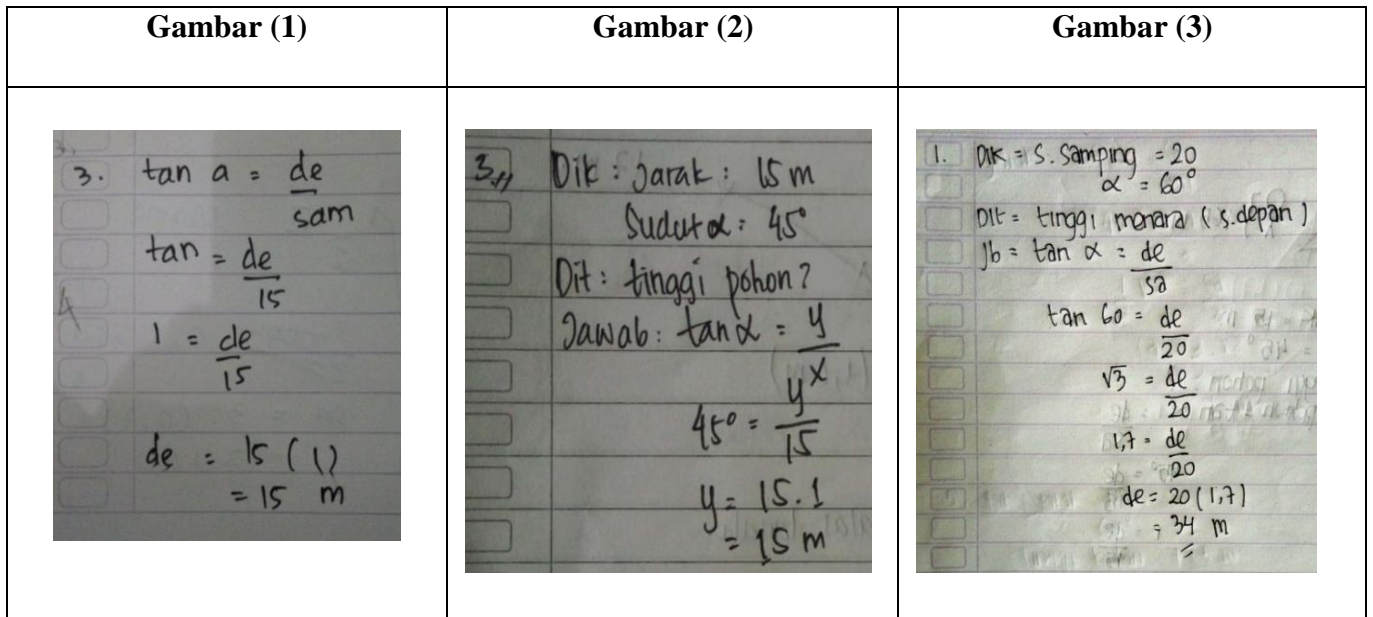 Gambar (1)
Gambar (2)
Gambar (3)
3. tan a = de
sam
tan = de
15
1 = de
15
de = 15 (1)
= 15 m
3. Dik : Jarak : 15 m
Sudut α : 45°
Dit : tinggi pohon ?
Jawab : tan α = y
x
45° = y
15
y = 15 . 1
= 15 m
1. Dik = S. Samping = 20
α = 60°
Dit = tinggi menara ( s.depan )
Jb = tan α = de
sa
tan 60 = de
20
√3 = de
20
1,7 = de
20
de = 20 (1,7)
= 34 m